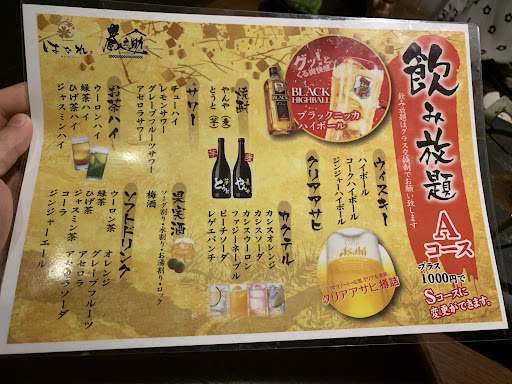 飲み放題
Aコース
飲み放題はグラス交換制でお願い致します
プラス
1000円で
Sコースに
変更ができます。
グッ!と
くる爽快感!
BLACK
HIGHBALL
ブラックニッカ
ハイボール
ウィスキー
ハイボール
コークハイボール
ジンジャーハイボール
クリアアサヒ
Asahi
クリアアサヒ 樽詰
焼酎
やんや(麦)
とうと(芋)
サワー
チューハイ
レモンサワー
グレープフルーツサワー
アセロラサワー
お茶ハイ
ウーロンハイ
緑茶ハイ
ひげ茶ハイ
ジャスミンハイ
カクテル
カシスオレンジ
カシスソーダ
カシスウーロン
ファジーネーブル
ピーチソーダ
レゲエパンチ
果実酒
ソーダ割り・水割り・お湯割り・ロック
梅酒
ソフトドリンク
ウーロン茶
緑茶
ひげ茶
ジャスミン茶
コーラ
ジンジャーエール
オレンジ
グレープフルーツ
アセロラ
アセロラソーダ
はなれ
蔵之助